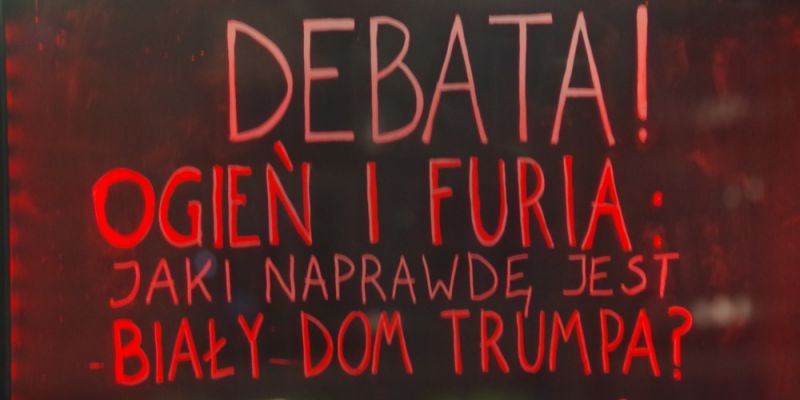 DEBATA!
OGIEŃ I FURIA:
JAKI NAPRAWDĘ JEST
BIAŁY DOM TRUMPA?